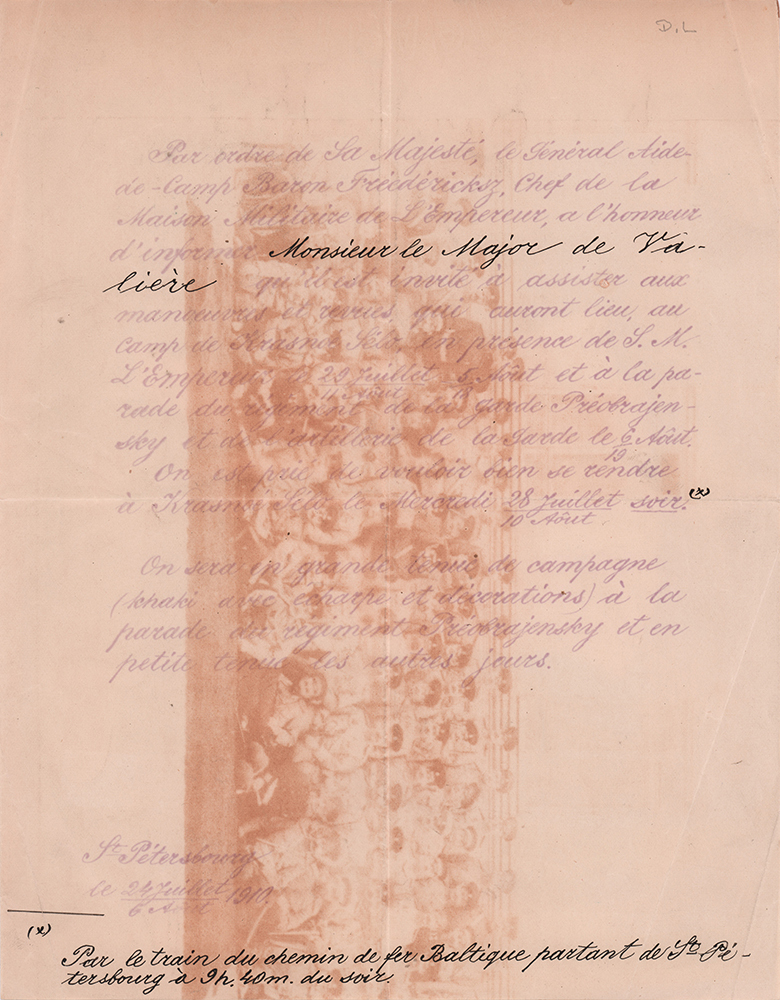 D.L
Par ordre de Sa Majesté, le Général Aide-
de-Camp Baron Fréedericksz, Chef de la
Maison Militaire de L'Empereur, a l'honneur
d'informer Monsieur le Major de Va-
lière qu'il est invité à assister aux
manœuvres et revues, qui auront lieu, au
camp de Krasnoé Sélo, en présence de S. M.
L'Empereur le 29 Juillet - 5 Août et à la pa-
11 Août
rade du régiment de la garde Préobrajen-
sky et de l'artillerie de la garde le 6 Août.
19
On est prié de vouloir bien se rendre
à Krasnoé Sélo le Mercredi, 28 Juillet soir. (x)
10 Août.
On sera en grande tenue de campagne
(khaki avec écharpe et décorations) à la
parade du régiment Préobrajensky et en
petite tenue les autres jours.
St Pétersbourg
le 24 Juillet 1910.
6 Août
(x)
Par le train du chemin de fer Baltique partant de St Pé-
tersbourg à 9h. 40m. du soir.